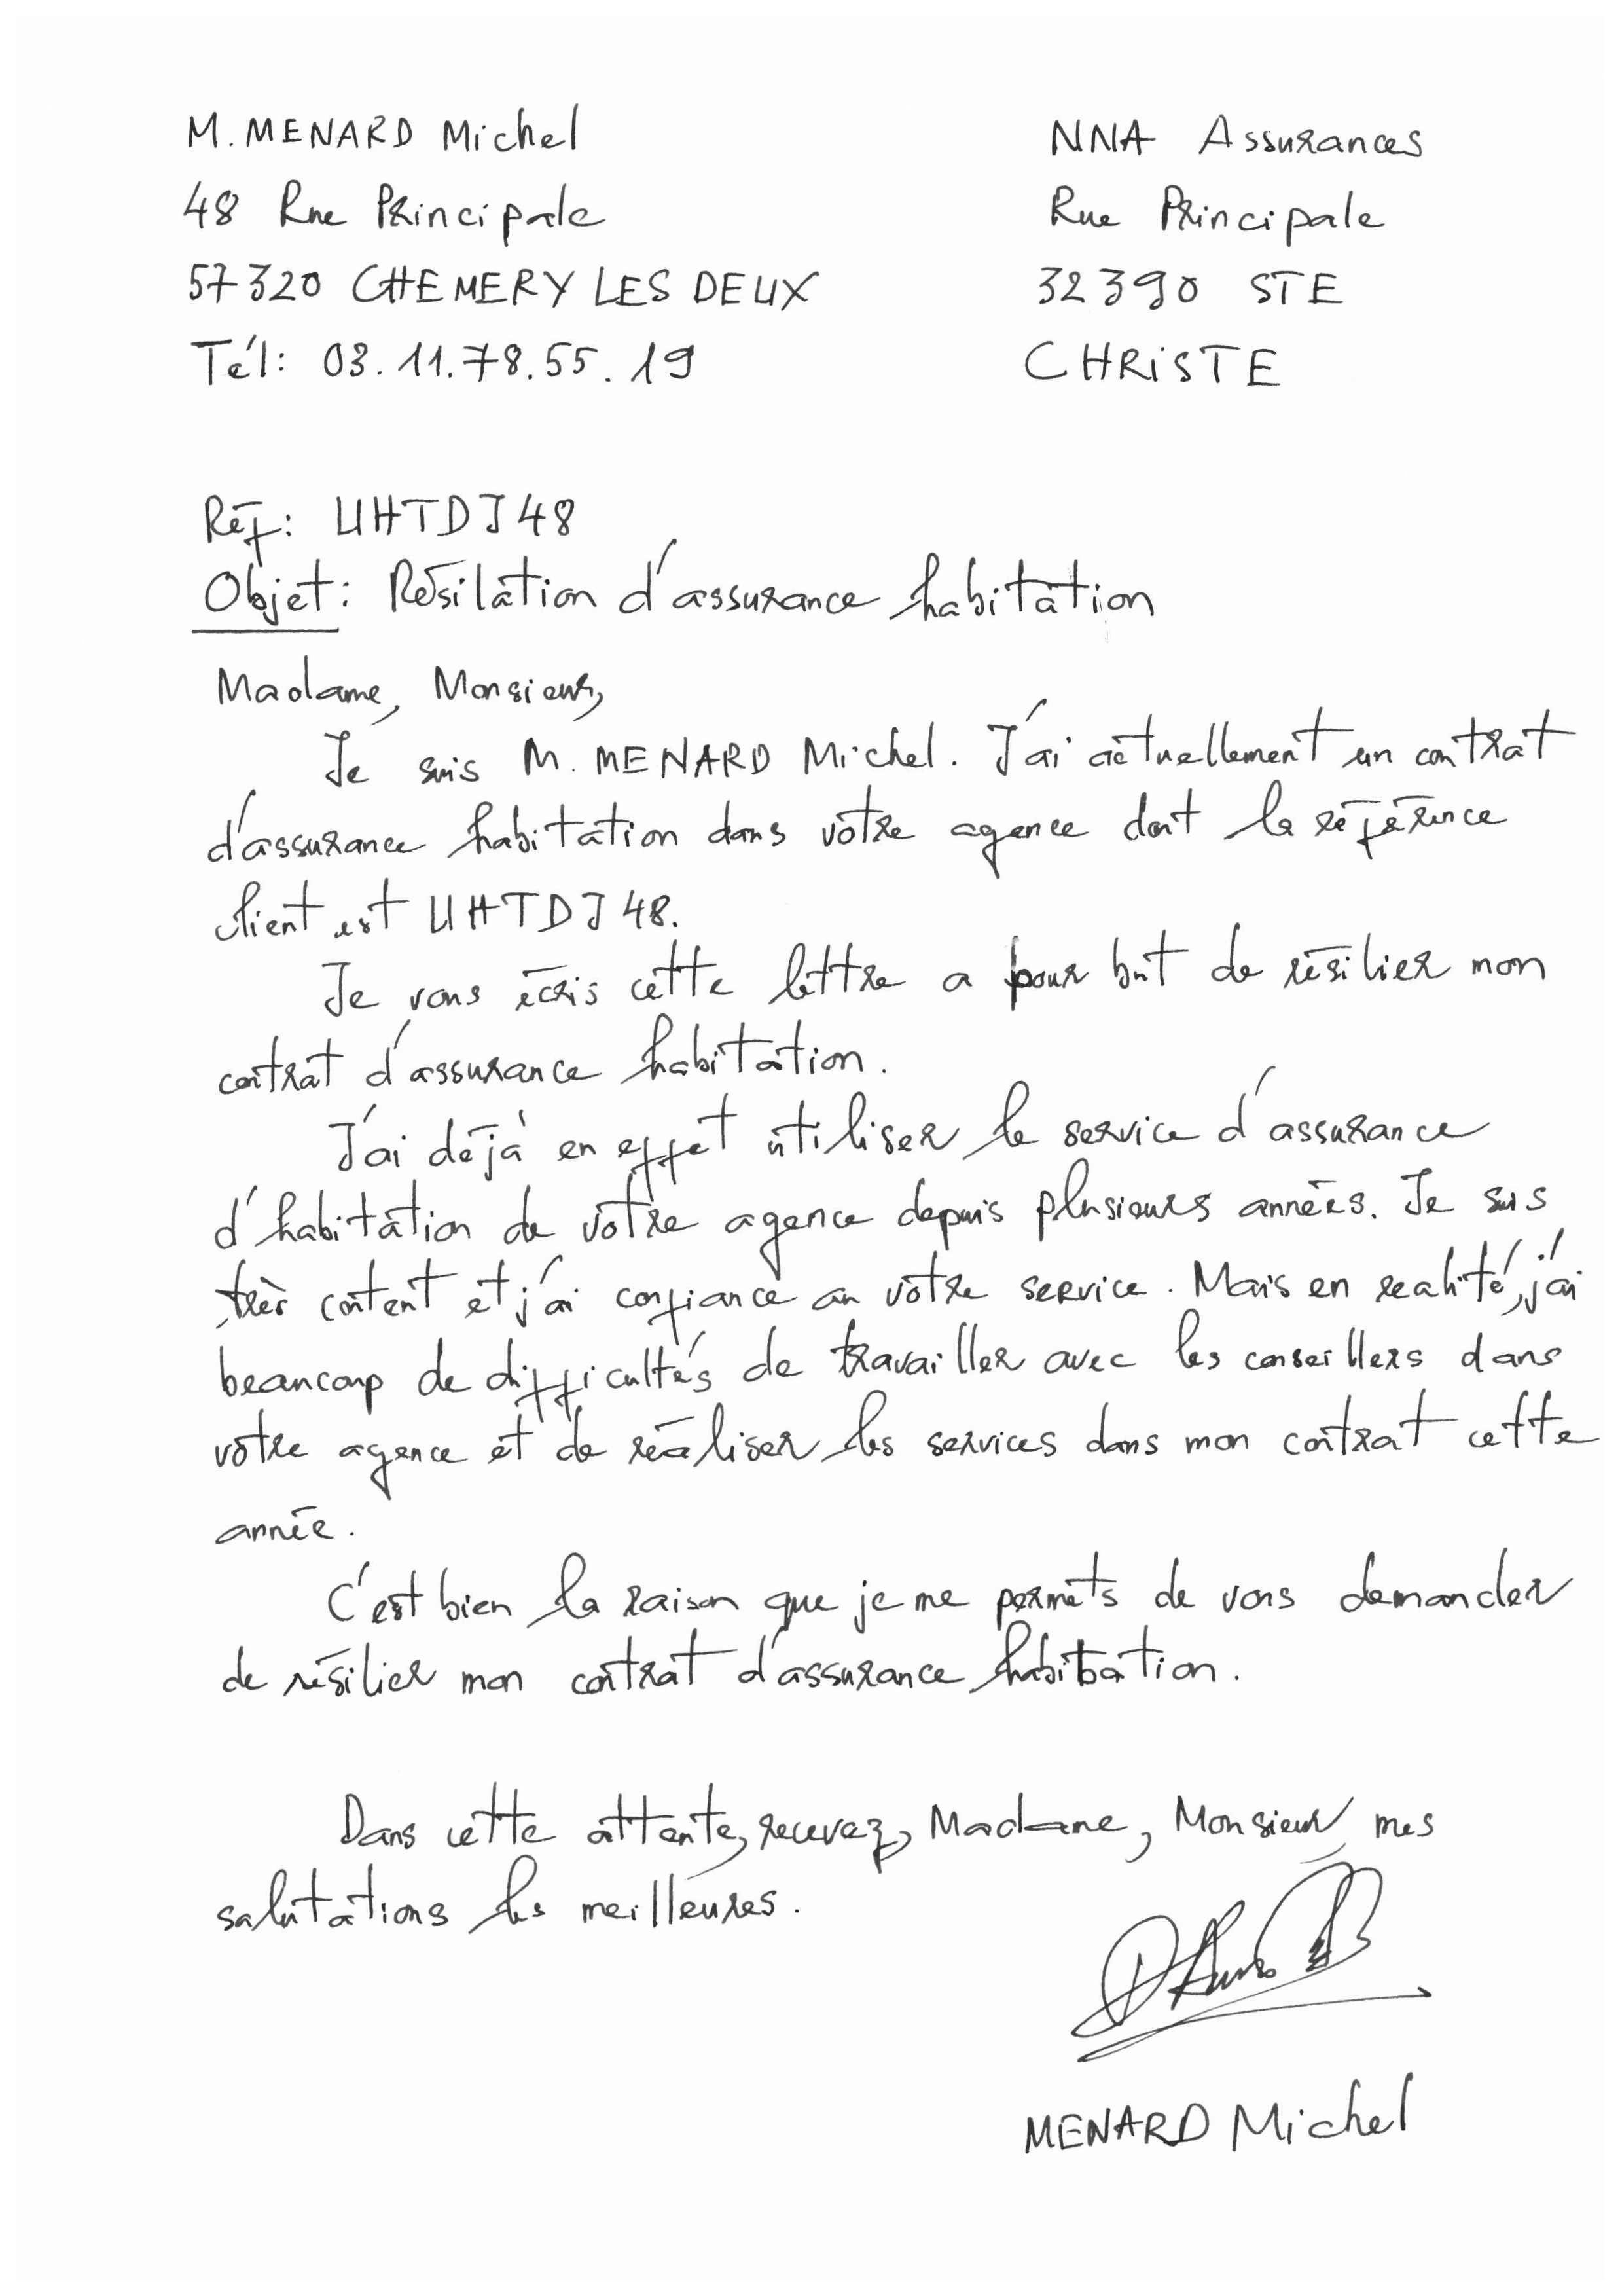 M. MENARD Michel
48 Rue Principale
57320 CHEMERY LES DEUX
Tél: 03.11.78.55.19
NNA Assurances
Rue Principale
32390 STE
CHRISTE
Réf: UHTDJ48
Objet: Résilation d'assurance habitation
Madame, Monsieur,
Je suis M. MENARD Michel. J'ai actuellement un contrat
d'assurance habitation dans votre agence dont la référence
client est UHTDJ48.
Je vous écris cette lettre a pour but de résilier mon
contrat d'assurance habitation.
J'ai déjà en effet utiliser le service d'assurance
d'habitation de votre agence depuis plusieurs années. Je suis
très content et j'ai confiance au votre service. Mais en realité, j'ai
beaucoup de difficultés de travailler avec les conseillers dans
votre agence et de réaliser les services dans mon contrat cette
année.
C'est bien la raison que je me permets de vous demander
de résilier mon contrat d'assurance habitation.
Dans cette attente, recevez, Madame, Monsieur, mes
salutations les meilleures.
MENARD Michel